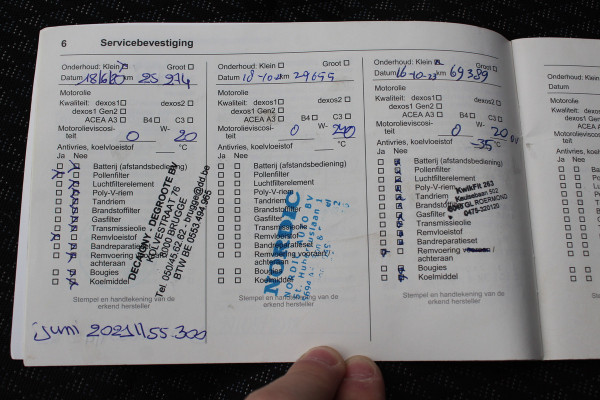 6 Servicebevestiging
Onderhoud: Klein Groot
Datum 18/6/20 km 25 274
Motorolie
Kwaliteit: dexos1 dexos2
dexos1 Gen2
ACEA A3 B4 C3
Motorolieviscosi- W-
teit 0 20
Antivries, koelvloeistof °C
Ja Nee
Batterij (afstandsbediening)
Pollenfilter
Luchtfilterelement
Poly-V-riem
Tandriem
Brandstoffilter
Gasfilter
Transmissieolie
Remvloeistof
Bandreparatieset
Remvoering voor
achteraan
Bougies
Koelmiddel
DECLIGNY - DEGROOTE BV
8000 BRUGGE
Stempel en handtekening van de
erkend hersteller
juni 2021 // 55.300
Onderhoud: Klein Groot
Datum km 29655
Motorolie
Kwaliteit: dexos1 dexos2
dexos1 Gen2
ACEA A3 B4 C3
Motorolieviscosi- W-
teit 0 20
Antivries, koelvloeistof °C
Ja Nee
Batterij (afstandsbediening)
Pollenfilter
Luchtfilterelement
Poly-V-riem
Tandriem
Brandstoffilter
Gasfilter
Transmissieolie
Remvloeistof
Bandreparatieset
Remvoering vooraan/
achteraan
Bougies
Koelmiddel
NORDIC
NORDIC AUTO BV
Stempel en handtekening van de
erkend hersteller
Onderhoud: Klein Groot
Datum 16-10-23 km 69389
Motorolie
Kwaliteit: dexos1 dexos2
dexos1 Gen2
ACEA A3 B4 C3
Motorolieviscosi- W-
teit 0 20
Antivries, koelvloeistof -35 °C
Ja Nee
Batterij (afstandsbediening)
Pollenfilter
Luchtfilterelement
Poly-V-riem
Tandriem
Brandstoffilter
Gasfilter
Transmissieolie
Remvloeistof
Bandreparatieset
Remvoering /
achteraan
Bougies
Koelmiddel
KwikFit 263
ROERMOND
0475-320120
Stempel en handtekening van de
erkend hersteller
Onderhoud
Datum
Motorolie
Kwaliteit:
Antivries,
Ja Nee